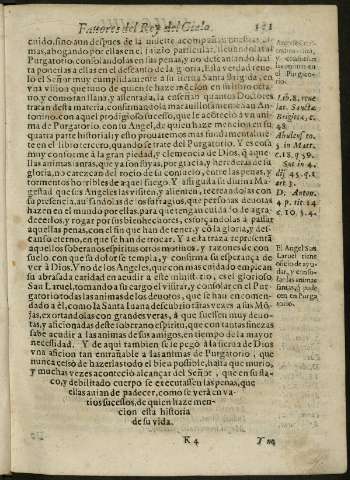 Fautores del Rey del Cielo.
cuido, sino aun despues de la muerte acompañan nuestras al-
mas, abogando por ellas en el juizio particular, lleuandolas al
Purgatorio, consolandolas en sus penas, y no descansando has-
ta ponerlas a ellas en el descanso de la gloria. Esta verdad reue-
lo el Señor muy cumplidamente a su sierua Santa Brigida, en
vna vision que tuuo de quien se haze mencion en su libro octa-
uo, y como tan llana, y assentada, la enseñan quantos Doctores
tratan desta materia, confirmandola marauillosamente san An-
tonino, con aquel prodigioso sucesso, que le acótecio a vn ani-
ma de Purgatorio con su Angel, de quien haze mencion en su
quarta parte historial, y ello prouaremos mas fundamentalmé-
te en el libro tercero, quando se trate del Purgatorio. Y es cosa
muy conforme a la gran piedad, y clemencia de Dios, q̃ aque-
llas animas santas, que ya son suyas, por gracia, y herederas de su
gloria, no carezcan del rocio de su consuelo, entre las penas, y
tormentos horribles de aquel fuego. Y assi gusta su diuina Ma-
gestad que sus Angeles las visiten, y alienten, recreandolas con
su presencia, auisandolas de los sufragios, que personas deuotas
hazen en el mundo por ellas, para que tengan cuidado de agra-
decerlos, y rogar por sus bienhechores, esforçandolas á passar
aquellas penas, con el fin que han de tener, y có la gloria, y des-
canso eterno, en que se han de trocar. Y a esta traza representá
aquellos soberanos espiritus otros motiuos, y razones de con-
suelo, con que su dolor se templa, y confirma su esperança de
ver à Dios. Y no de los Angeles, que con mas cuidado emplean
su abrasada caridad en acudir a este ministerio, es el glorioso
San Laruel, tomando a su cargo el visitar, y consolar en el Pur-
gatorio todas las animas de los deuotos, que se han encomen-
dado a él, como la Santa Iuana descubrio varias vezes a sus Mó-
jas, exortandolas con grandes veras, á que fuessen muy deuo-
tas, y aficionadas deste soberano espiritu, que con tantas finezas
sabe acudir a las animas de sus amigos, en tiempo de la mayor
necessidad. Y de aqui tambien se le pegò a la sierua de Dios
vna aficion tan entrañable a las animas de Purgatorio, que
nunca cessò de hazerlas todo el bien possible, hasta que murio,
y muchas vezes acontecio alcançar del Señor, que en su fla-
co, y debilitado cuerpo se executassen las penas, que
ellas auian de padecer, como se verà en va-
rios sucessos, de quien haze men-
cion esta historia
de su vida.
K 4
Lib. 8. reue
lat. Sancta
Brigita, c.
48.
Abulense to.
5. in Matt.
c. 18. q. 59.
Sot in 4.
dist. 45. q. 1.
art. 3.
D. Anton.
4. p. tit. 14
c. 10. §. 4.
El Angel San
Laruel tiene
oficio de ayu-
dar, y conso-
lar las animas
santas, q̃ pade-
cen en Purga-
torio.